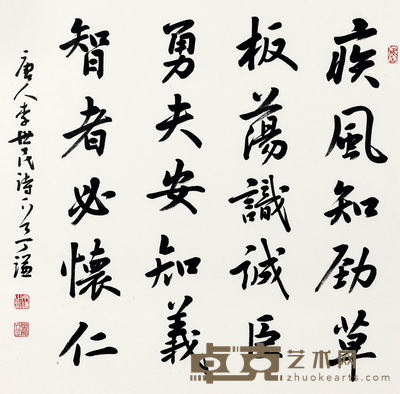 疾風知勁草
板蕩識誠臣
勇夫安知義
智者必懷仁
唐人李世民詩 丁謐
卓克艺术网
zhuokearts.com